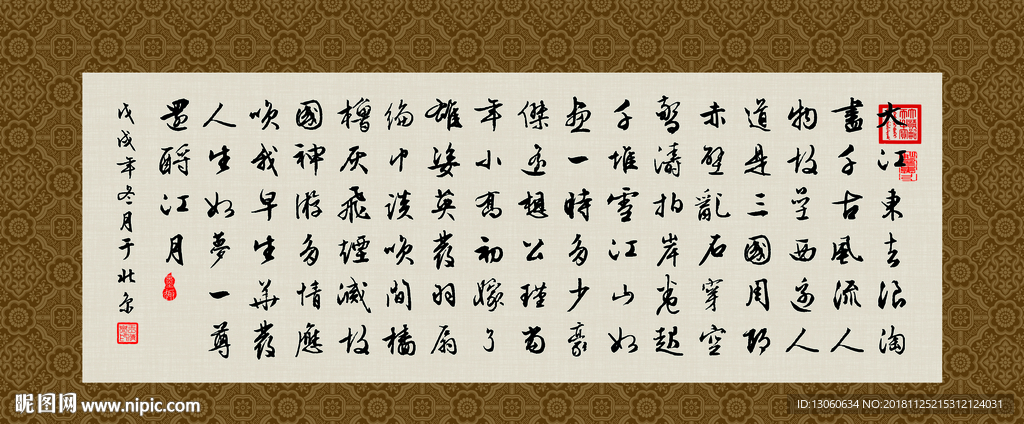 大江東去浪淘
盡千古風流人
物故壘西邊人
道是三國周郎
赤壁亂石穿空
驚濤拍岸卷起
千堆雪江山如
畫一時多少豪
傑遥想公瑾當
年小喬初嫁了
雄姿英發羽扇
綸巾談咲間檣
櫓灰飛煙滅故
國神游多情應
咲我早生華發
人生如夢一尊
還酹江月
戊戌年冬月于北京
昵图网 www.nipic.com
ID:13060634 NO:20181125215312124031